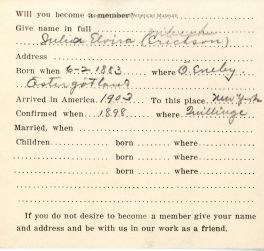 Will you become a member?
Give name in full
Julia Elvira (Erickson)
Address
Born when 6-2 1883 where Ö. Eneby
Östergötland
Arrived in America 1903 To this place New York
Confirmed when 1898 where Qvillinge
Married, when
Children born where
born where
born where
born where
If you do not desire to become a member give your name
and address and be with us in our work as a friend.